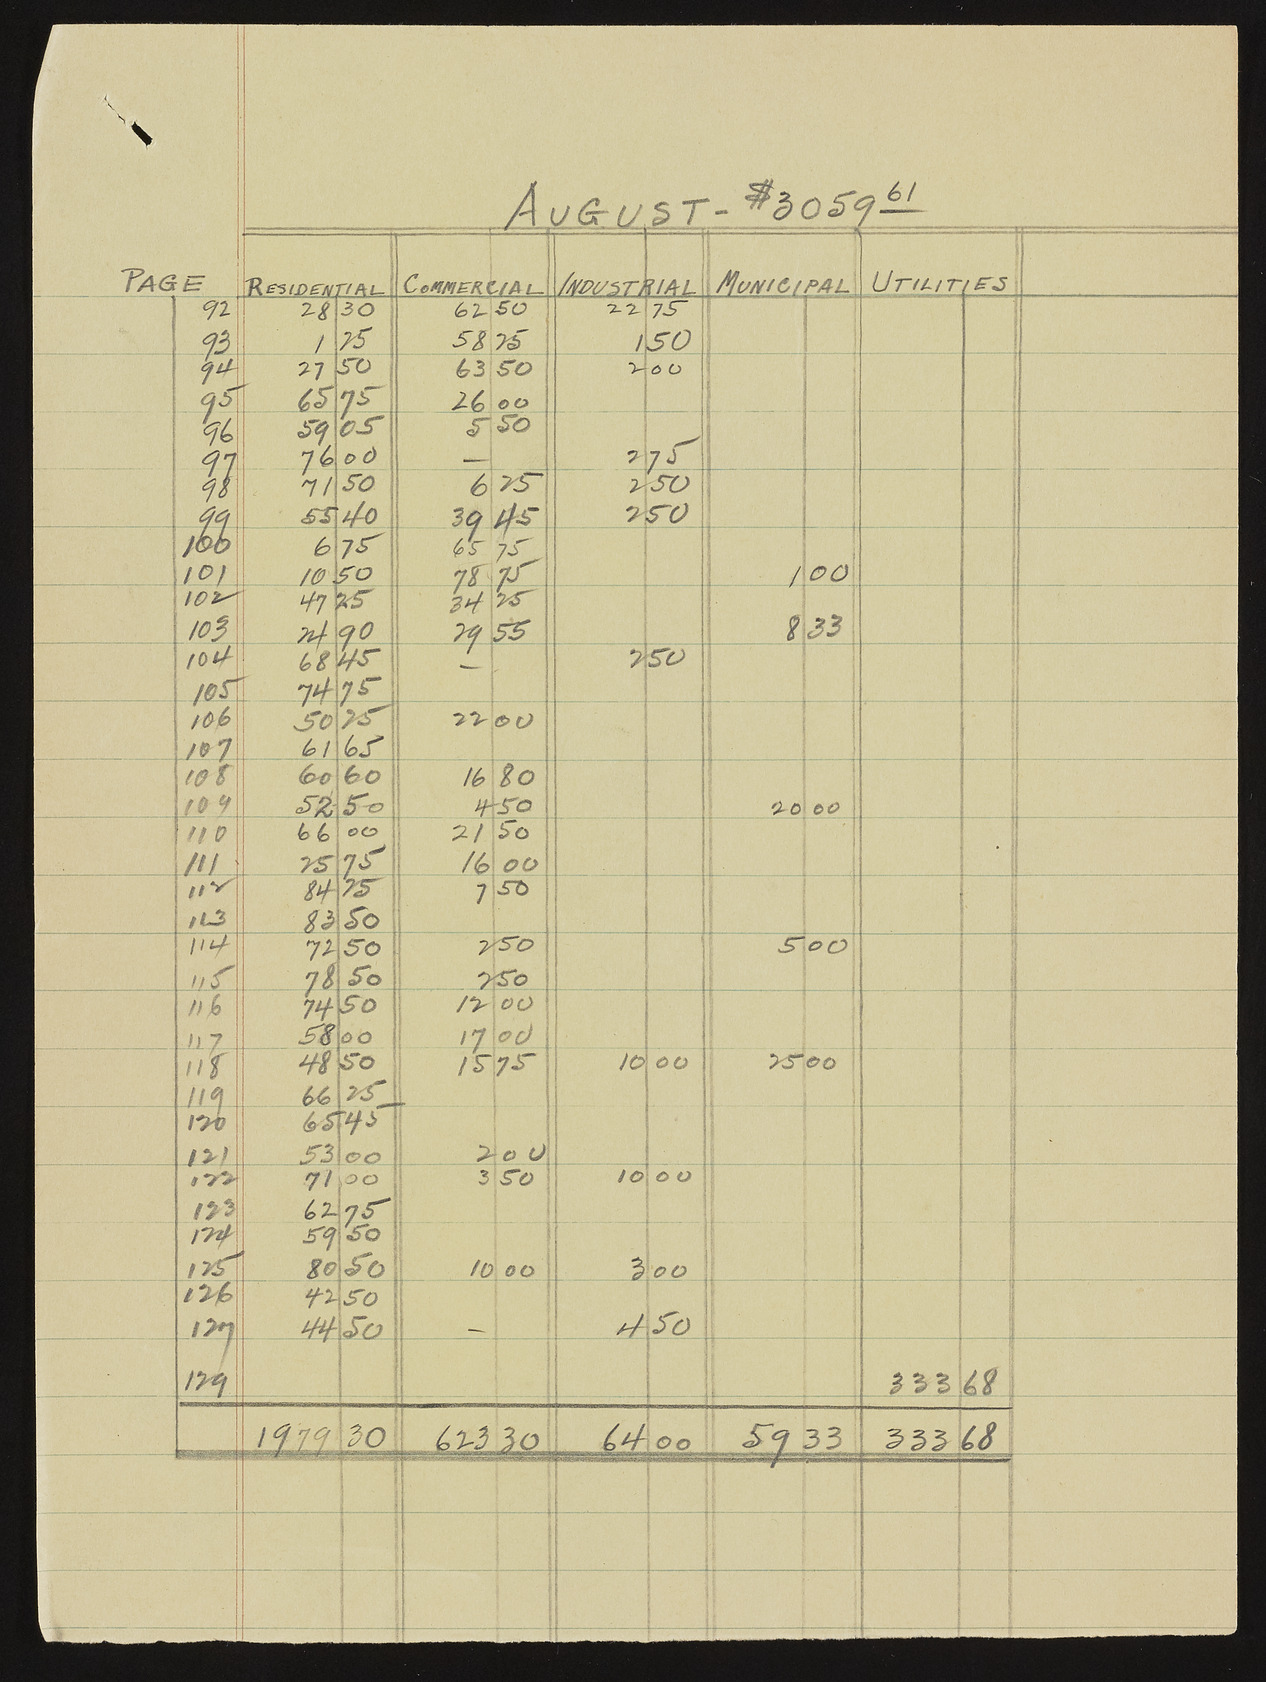 AUGUST - $3059 61
PAGE RESIDENTIAL COMMERCIAL INDUSTRIAL MUNICIPAL UTILITIES
92 28 30 62 50 22 75
93 1 25 58 25 1 50
94 27 50 63 50 2 00
95 65 75 26 00
96 59 05 5 50
97 76 00 — 2 75
98 71 50 6 25 2 50
99 55 40 39 45 2 50
100 6 75 65 75
101 10 50 78 75 1 00
102 47 25 34 25
103 24 90 29 55 8 33
104 68 45 — 2 50
105 74 75
106 50 25 22 00
107 61 65
108 60 60 16 80
109 52 50 4 50 20 00
110 66 00 21 50
111 25 75 16 00
112 84 25 7 50
113 83 50
114 72 50 2 50 5 00
115 78 50 2 50
116 74 50 12 00
117 58 00 17 00
118 48 50 15 75 10 00 25 00
119 66 25
120 65 45
121 53 00 2 00
122 71 00 3 50 10 00
123 62 75
124 59 50
125 80 50 10 00 3 00
126 42 50
127 44 50 — 4 50
129 333 68
1979 30 623 30 64 00 59 33 333 68